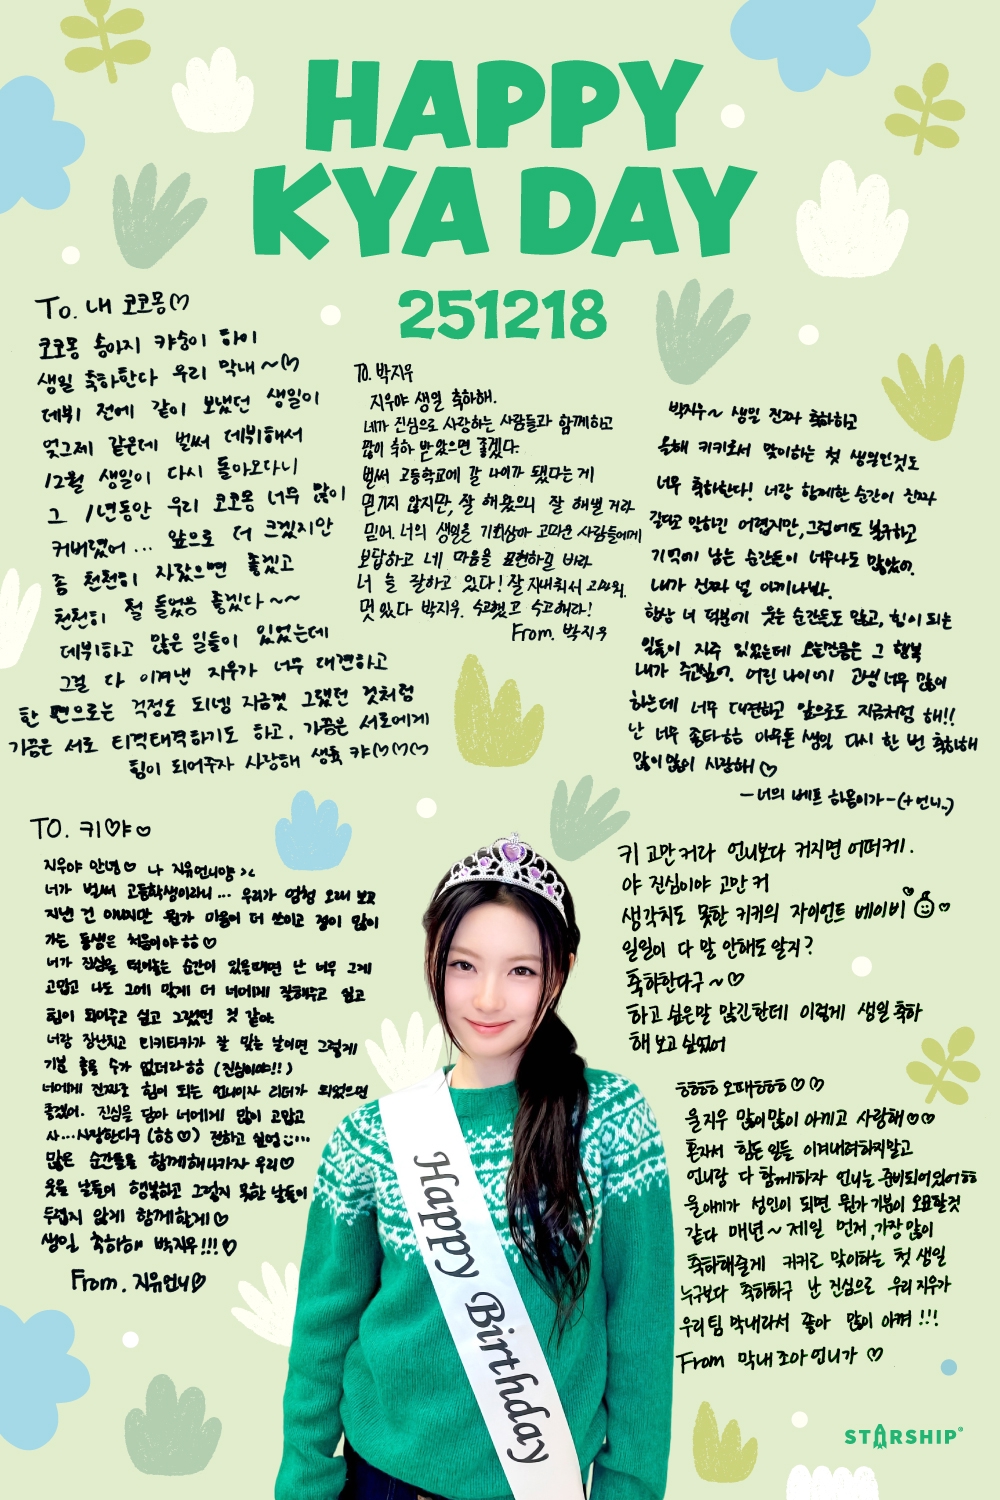 HAPPY
KYA DAY
251218
To. 내 코코몽♡
코코몽 송아지 캬숭이 하이
생일 축하한다 우리 막내~♡
데뷔 전에 같이 보냈던 생일이
엊그제 같은데 벌써 데뷔해서
12월 생일이 다시 돌아오다니
그 1년동안 우리 코코몽 너무 많이
커버렸어... 앞으로 더 크겠지만
좀 천천히 자랐으면 좋겠고
천천히 철 들었음 좋겠다~~
데뷔하고 많은 일들이 있었는데
그걸 다 이겨낸 지우가 너무 대견하고
한 편으로는 걱정도 되넹 지금껏 그랬던 것처럼
가끔은 서로 티격태격하기도 하고, 가끔은 서로에게
힘이 되어주자 사랑해 생축 캬♡♡♡
To. 박지우
지우야 생일 축하해.
네가 진심으로 사랑하는 사람들과 함께하고
많이 축하 받았으면 좋겠다.
벌써 고등학교에 갈 나이가 됐다는 게
믿기지 않지만, 잘 해왔으니 잘 해낼 거라
믿어. 너의 생일을 기회삼아 고마운 사람들에게
보답하고 네 마음을 표현하길 바라
너 늘 잘하고 있다! 잘 지내줘서 고마워.
멋있다 박지우. 수고했고 수고해라!
From. 박지우
박지우~ 생일 진짜 축하하고
올해 키키로서 맞이하는 첫 생일인것도
너무 축하한다! 너랑 함께한 순간이 진짜
길다고 말하긴 어렵지만, 그럼에도 불구하고
기억에 남는 순간들이 너무나도 많았어.
내가 진짜 널 아끼나봐.
항상 너 덕분에 웃는 순간들도 많고, 힘이 되는
일들이 자주 있었는데 오늘만큼은 그 행복
내가 주고싶어. 어린 나이에 고생 너무 많이
하는데 너무 대견하고 앞으로도 지금처럼 해!!
난 너무 좋다ㅎㅎ 아무튼 생일 다시 한 번 축하해
많이많이 사랑해♡
-너의 베프 하음이가-(+언니..)
TO. 키♡캬♡
지우야 안녕♡ 나 지유언니양 ><
너가 벌써 고등학생이라니... 우리가 엄청 오래 보고
지낸 건 아니지만 뭔가 마음이 더 쓰이고 정이 많이
가는 동생은 처음이야ㅎㅎ♡
너가 진심을 털어놓는 순간이 있을때면 난 너무 그게
고맙고 나도 그에 맞게 더 너에게 잘해주고 싶고
힘이 되어주고 싶고 그랬던 것 같아.
너랑 장난치고 티키타카가 잘 맞는 날이면 그렇게
기분 좋을 수가 없더라ㅎㅎ (진심이야!!)
너에게 진짜로 힘이 되는 언니이자 리더가 되었으면
좋겠어. 진심을 담아 너에게 많이 고맙고
사...사랑한다구 (ㅎㅎ♡) 전하고 싶엉...
많은 순간들을 함께해나가자 우리♡
웃을 날들이 행복하고 그렇지 못한 날들이
두렵지 않게 함께할게♡
생일 축하해 박지우!!!♡
From. 지유언니♡
키 고만 커라 언니보다 커지면 어떠케.
야 진심이야 고만 커
생각치도 못한 키키의 자이언트 베이비♡
일일이 다 말 안해도 알지?
축하한다구~♡
하고 싶은말 많긴한데 이렇게 생일축하
해 보고 싶었어
ㅎㅎㅎㅎ 오때ㅎㅎㅎㅎ♡♡
울지우 많이많이 아끼고 사랑해♡♡
혼자서 힘든 일들 이겨내려하지말고
언니랑 다 함께하자 언니는 준비되어있어ㅎㅎ
울애기가 성인이 되면 뭔가 기분이 오묘할것
같다 매년~ 제일 먼저, 가장 많이
축하해줄게 키키로 맞이하는 첫 생일
누구보다 축하하구 난 진심으로 우리 지우가
우리팀 막내라서 좋아 많이 아껴!!!
From 막내조아언니가♡
Happy Birthday
STARSHIP